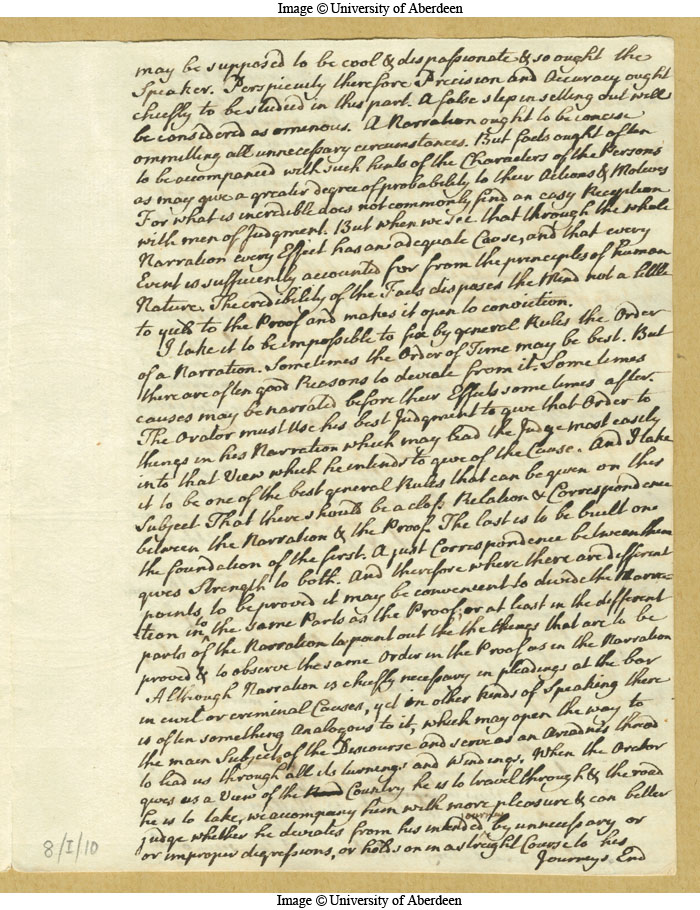 Image © University of Aberdeen
may be supposed to be cool & dispassionate & so ought the
Speaker. Perspicuity therefore Precision and Accuracy ought
chiefly to be studied in this part. A false step in setting out will
be considered as ominous. A Narration ought to be concise
ommitting all unnecessary circumstances. But facts ought often
to be accompanied with such hints of the Characters of the Persons
as may give a greater degree of probability to their Actions & Motives
For what is incredible does not commonly find an easy Reception
with men of Judgment. But when we see that through the whole
Narration every Effect has an adequate Cause, and that every
Event is sufficiently accounted for from the principles of human
Nature. The credibility of the Facts disposes the Mind not a little
to yield to the Proof and makes it open to conviction.
I take it to be impossible to fix by general Rules the Order
of a Narration. Sometimes the Order of Time may be best. But
there are often good Reasons to deviate from it. Some times
causes may be narrated before their Effects some times after.
The Orator must Use his best Judgment to give that Order to
things in his Narration which may lead the Judge most easily
into that View which he intends to give of the Cause. And I take
it to be one of the best general Rules that can be given on this
Subject That there should be a close Relation & Correspondence
between the Narration & the Proof. The last is to be built one
the foundation of the first. A just Correspondence between them
gives Strength to both. And therefore where there are different
points to be proved it may be convenient to divide the Narra-
tion into the same Parts as the Proof, or at least in the different
parts of the Narration to point out the the things that are to be
proved & to observe the same Order in the Proof as in the Narration
Although Narration is chiefly necessary in pleadings at the bar
in civil or criminal Causes, yet in other kinds of Speaking there
is often something Analogous to it, which may open the way to
the main Subject of the Discourse and serve as an Ariadnes thread
to lead us through all its turnings and Windings. When the Orator
gives us a View of the Country he is to travel through & the road
he is to take, we accompany him with more pleasure & can better
judge whether he deviates from his intended journey by unnecessary or
or improper degressions, or holds on in a streight Course to his
Journeys End
8/I/10
Image © University of Aberdeen